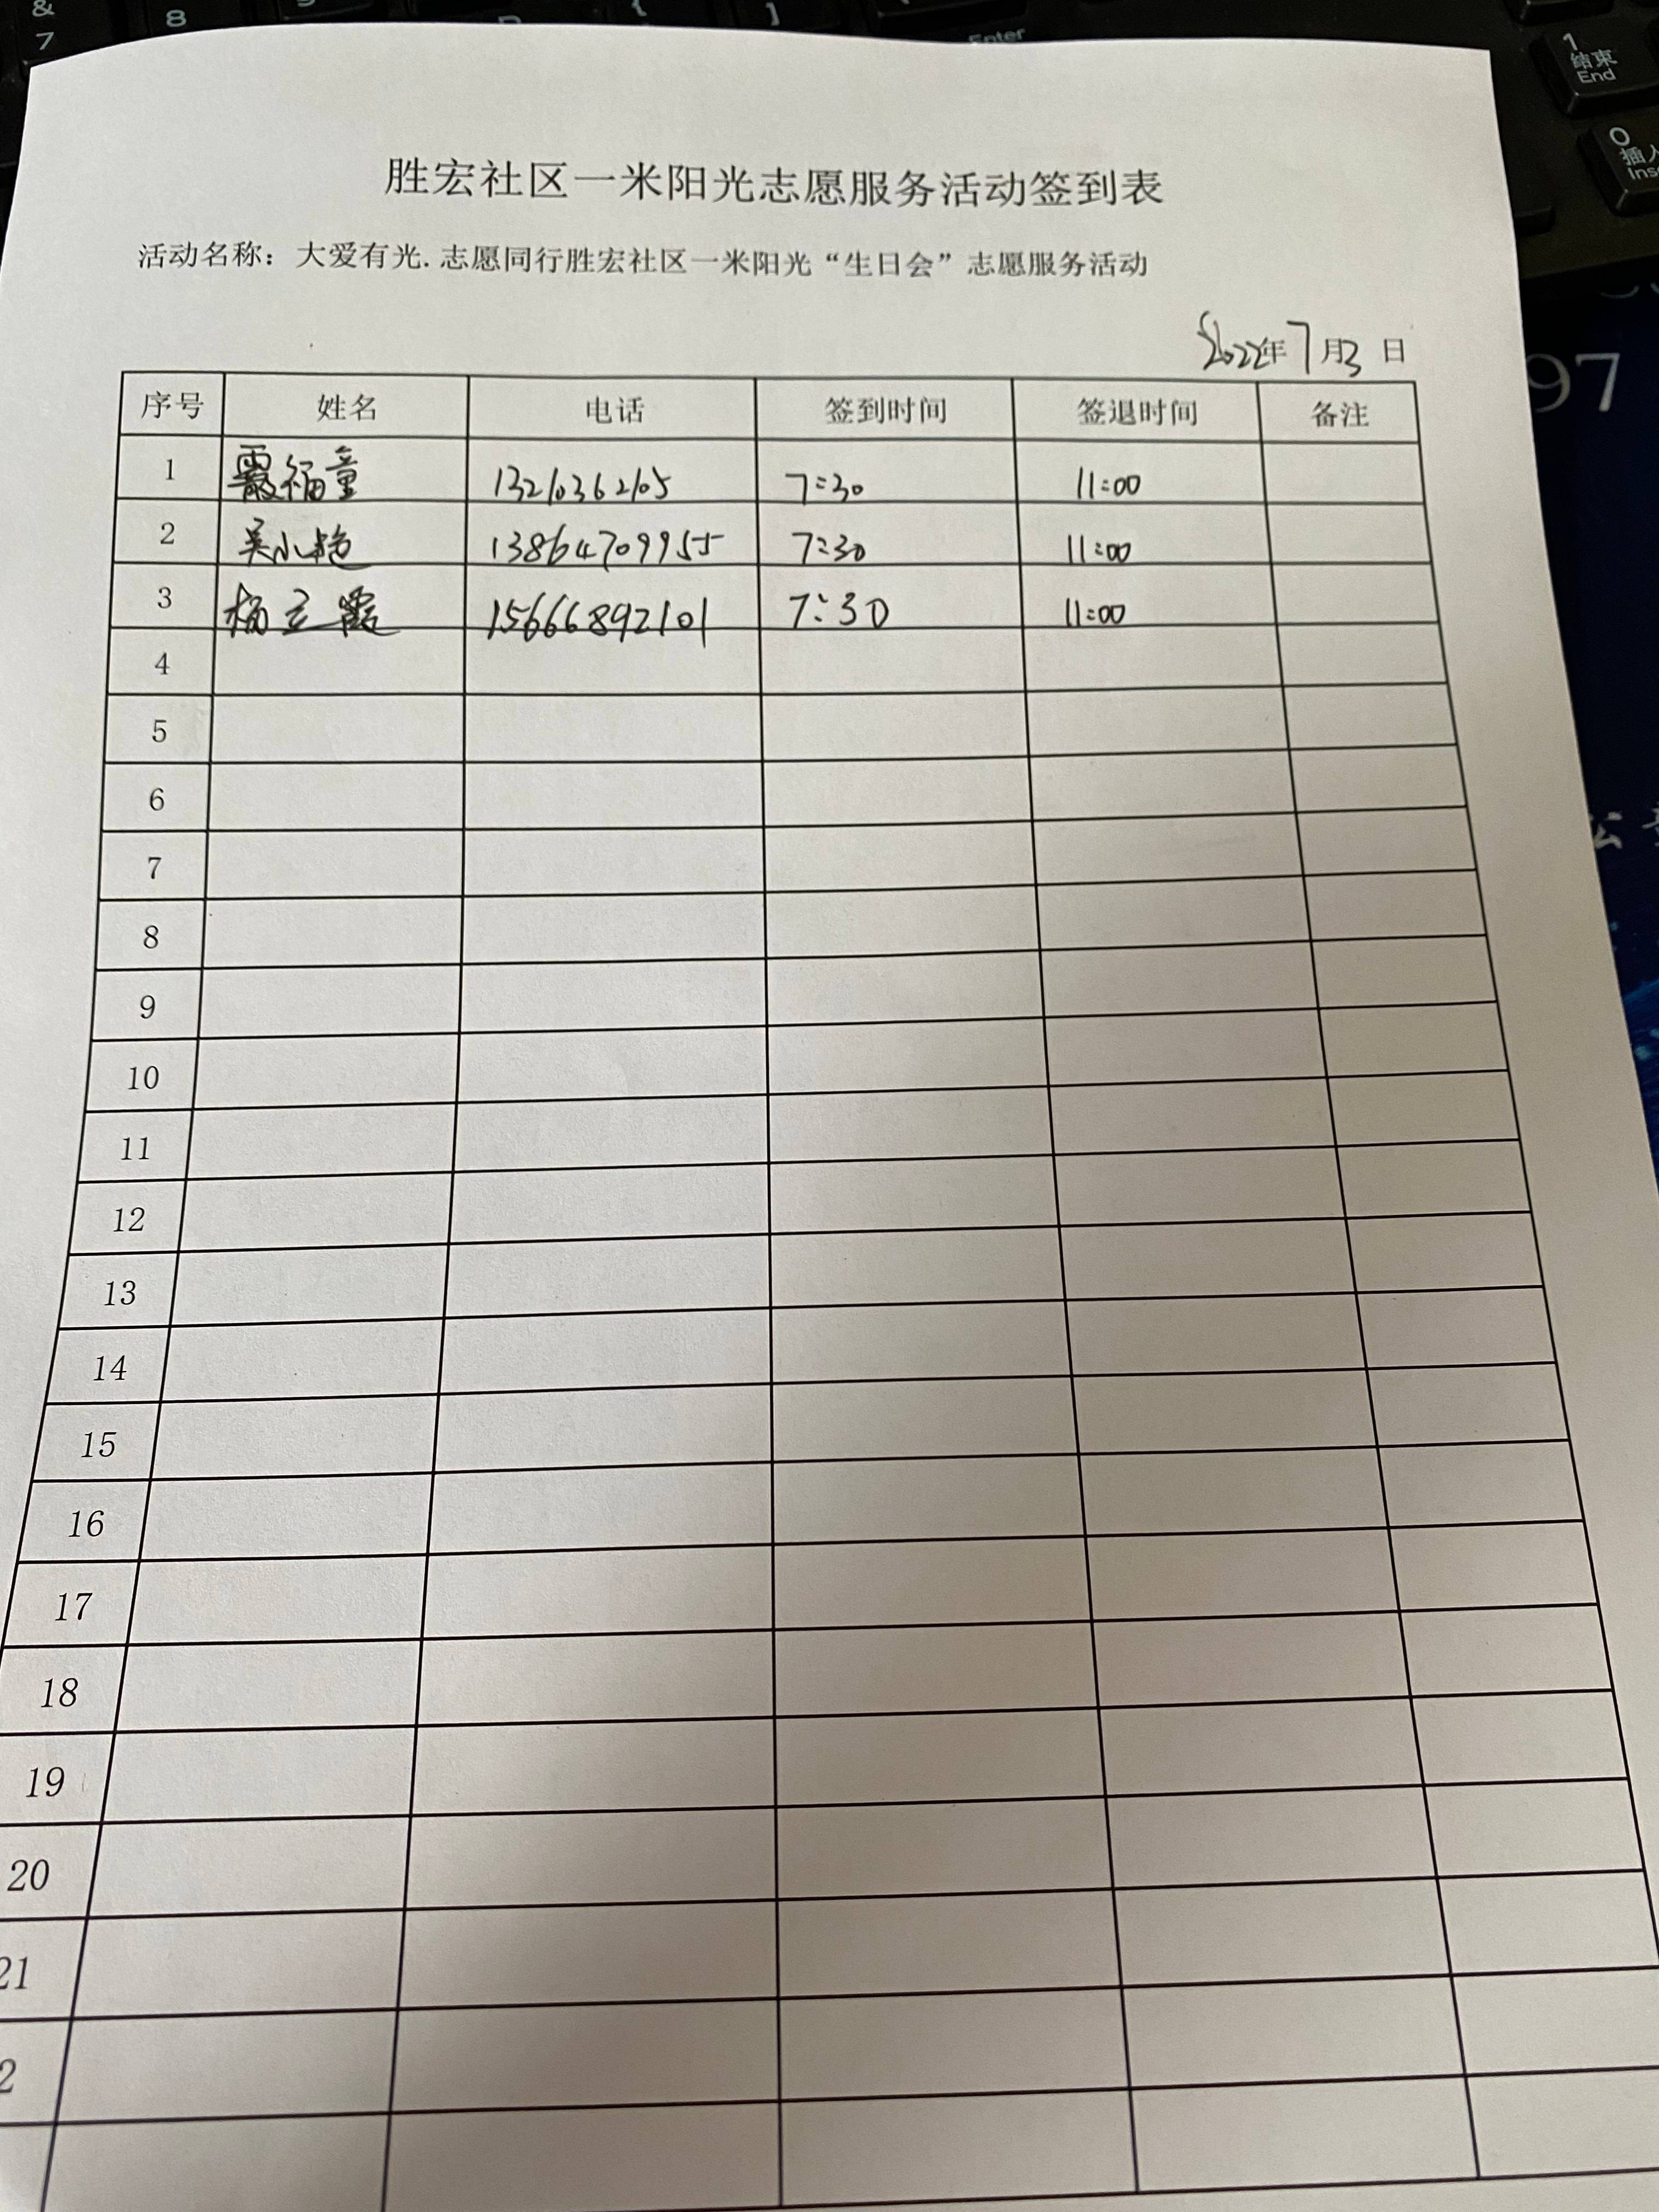 胜宏社区一米阳光志愿服务活动签到表
活动名称：大爱有光.志愿同行胜宏社区一米阳光“生日会”志愿服务活动
2022年7月3日
序号 姓名 电话 签到时间 签退时间 备注
1 福童 13210362105 7:30 11:00
2 吴小艳 13864709955 7:30 11:00
3 杨立霞 15666892101 7:30 11:00
4
5
6
7
8
9
10
11
12
13
14
15
16
17
18
19
20
21
2
&
7
8
{
]
Enter
1
结束
End
0
插入
Ins
97
公